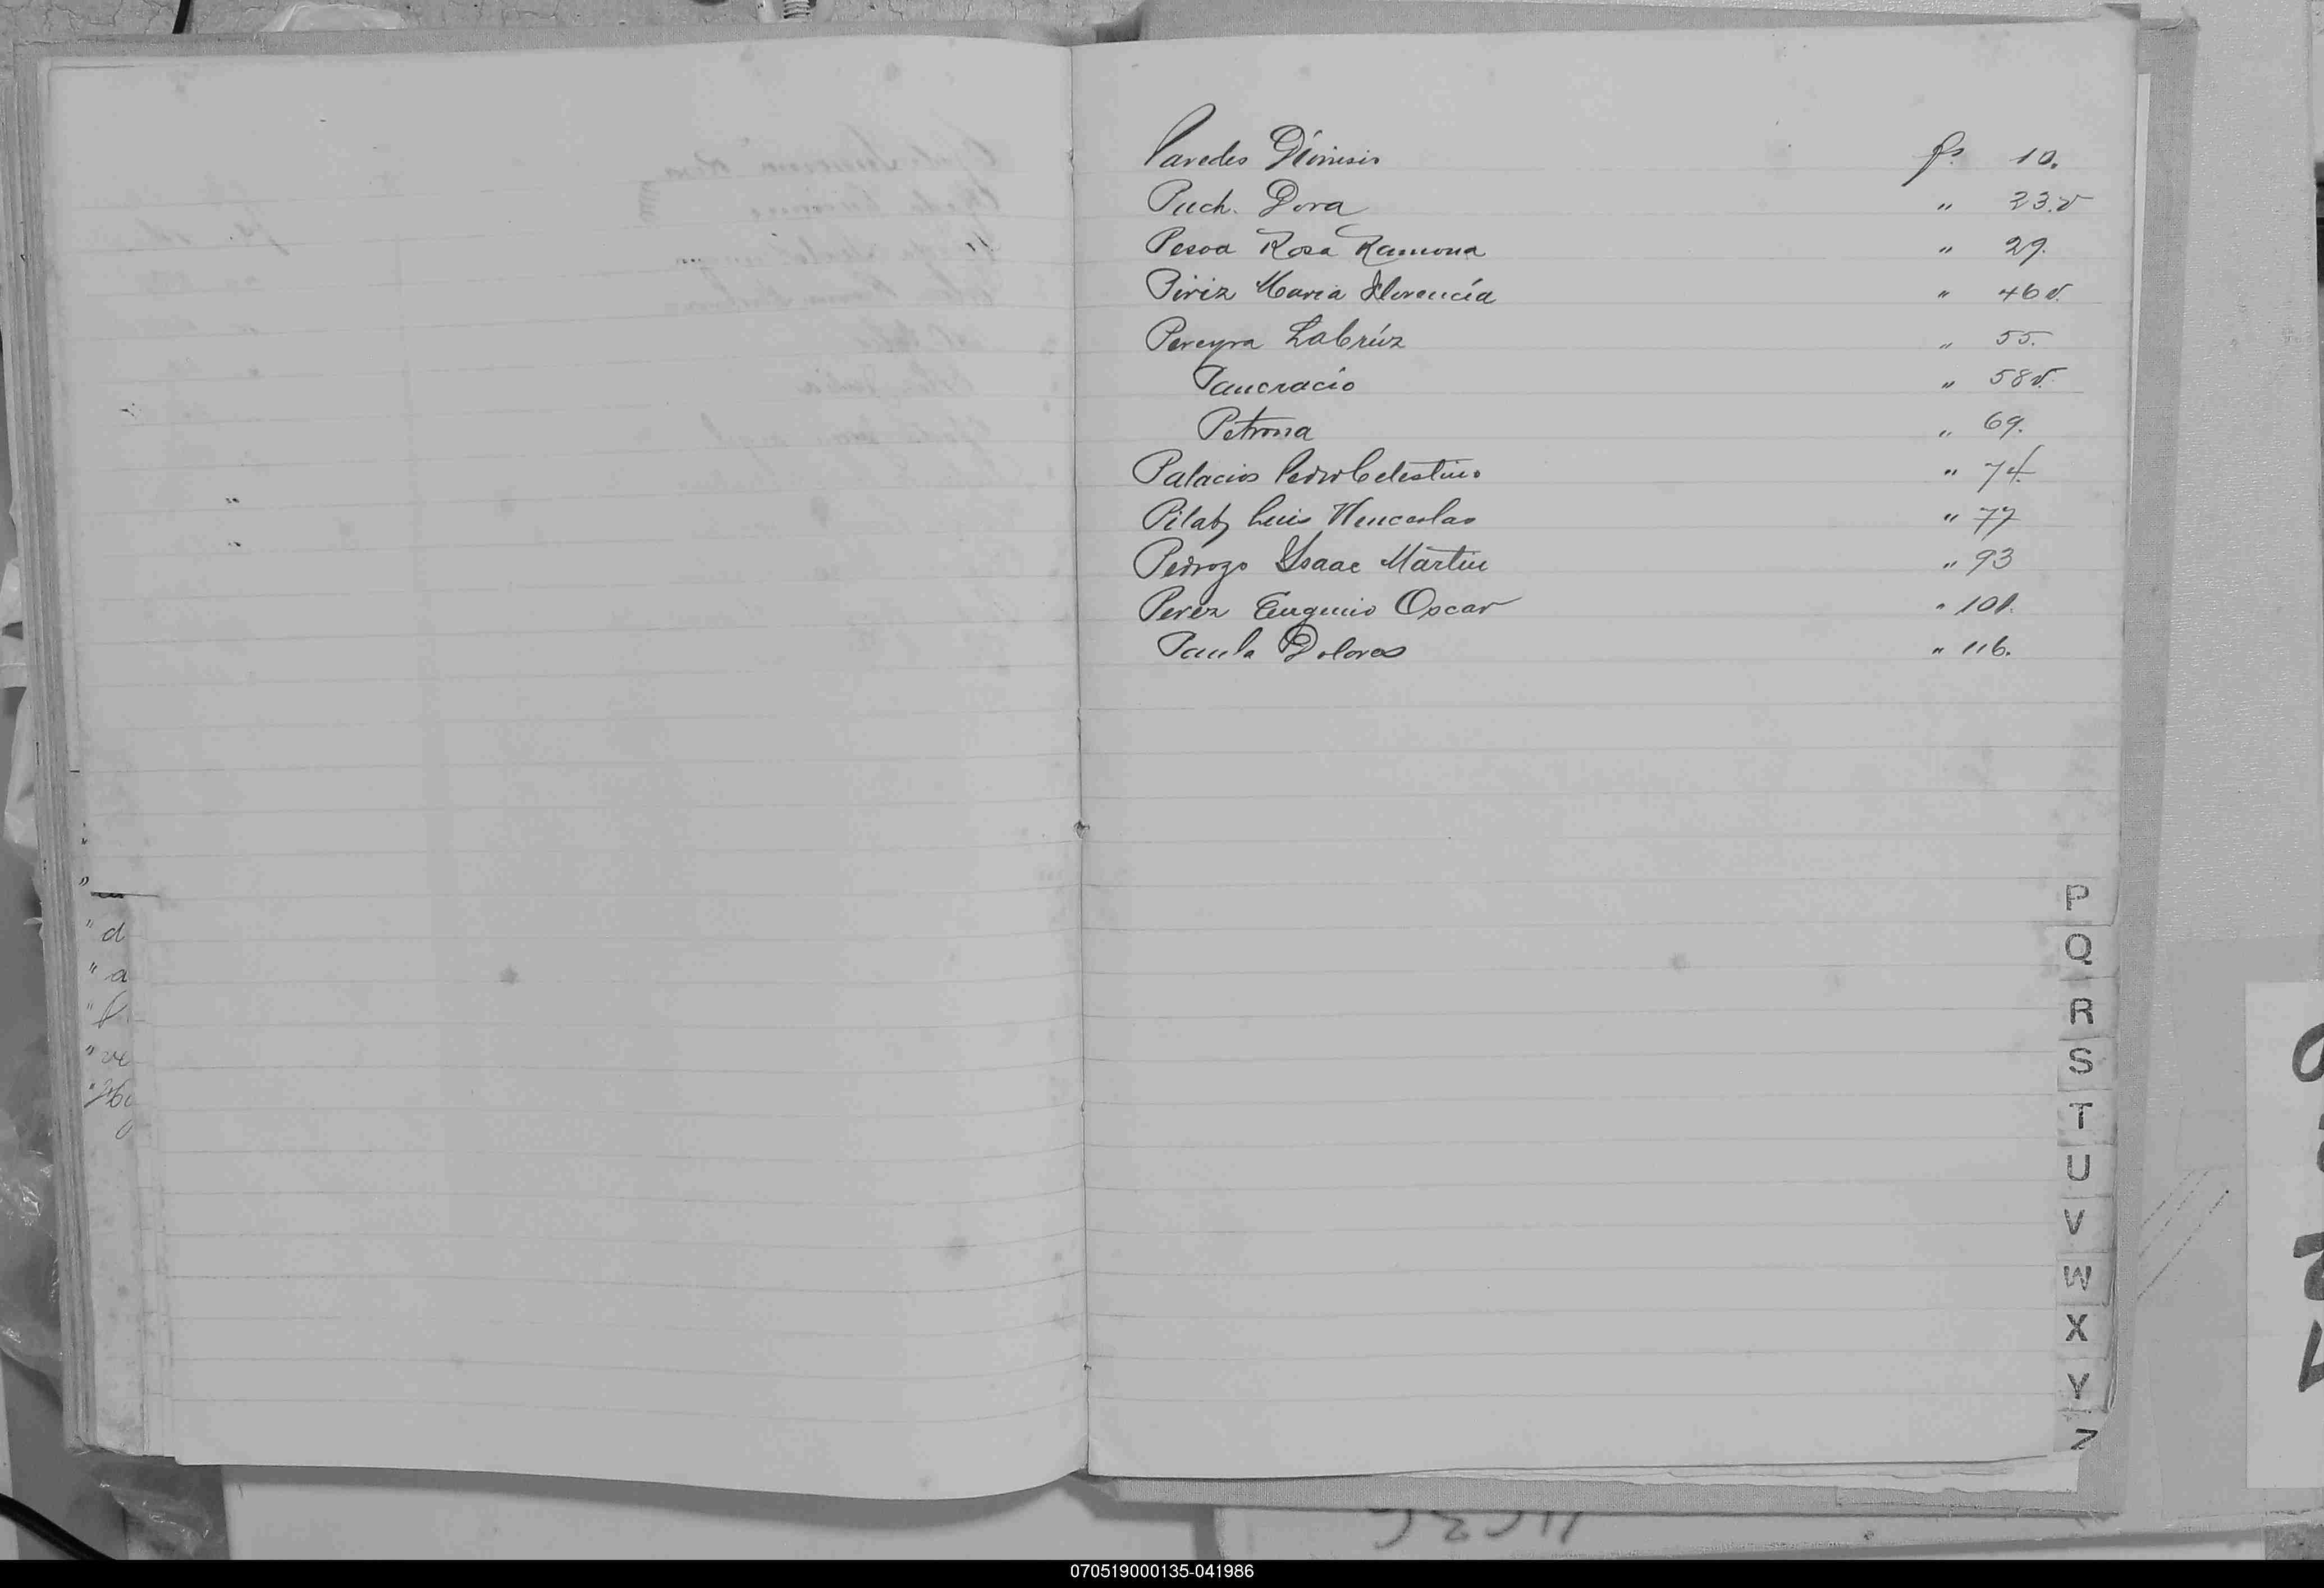 Paredes Dionisio fs. 10.
Puch. Dora " 23.v
Pesoa Rosa Ramona " 29.
Piriz Maria Florencia " 46 v.
Pereyra Labrúz " 55.
Pancracio " 58 v.
Petrona " 69.
Palacios Pedro Celestino " 74.
Pilaty Luis Wenceslao " 77
Pedrozo Ysaac Martin " 93
Perez Eugenio Oscar " 101.
Paula Dolores " 116.
P
Q
R
S
T
U
V
W
X
Y
Z
" d
" a
" ve
070519000135-041986